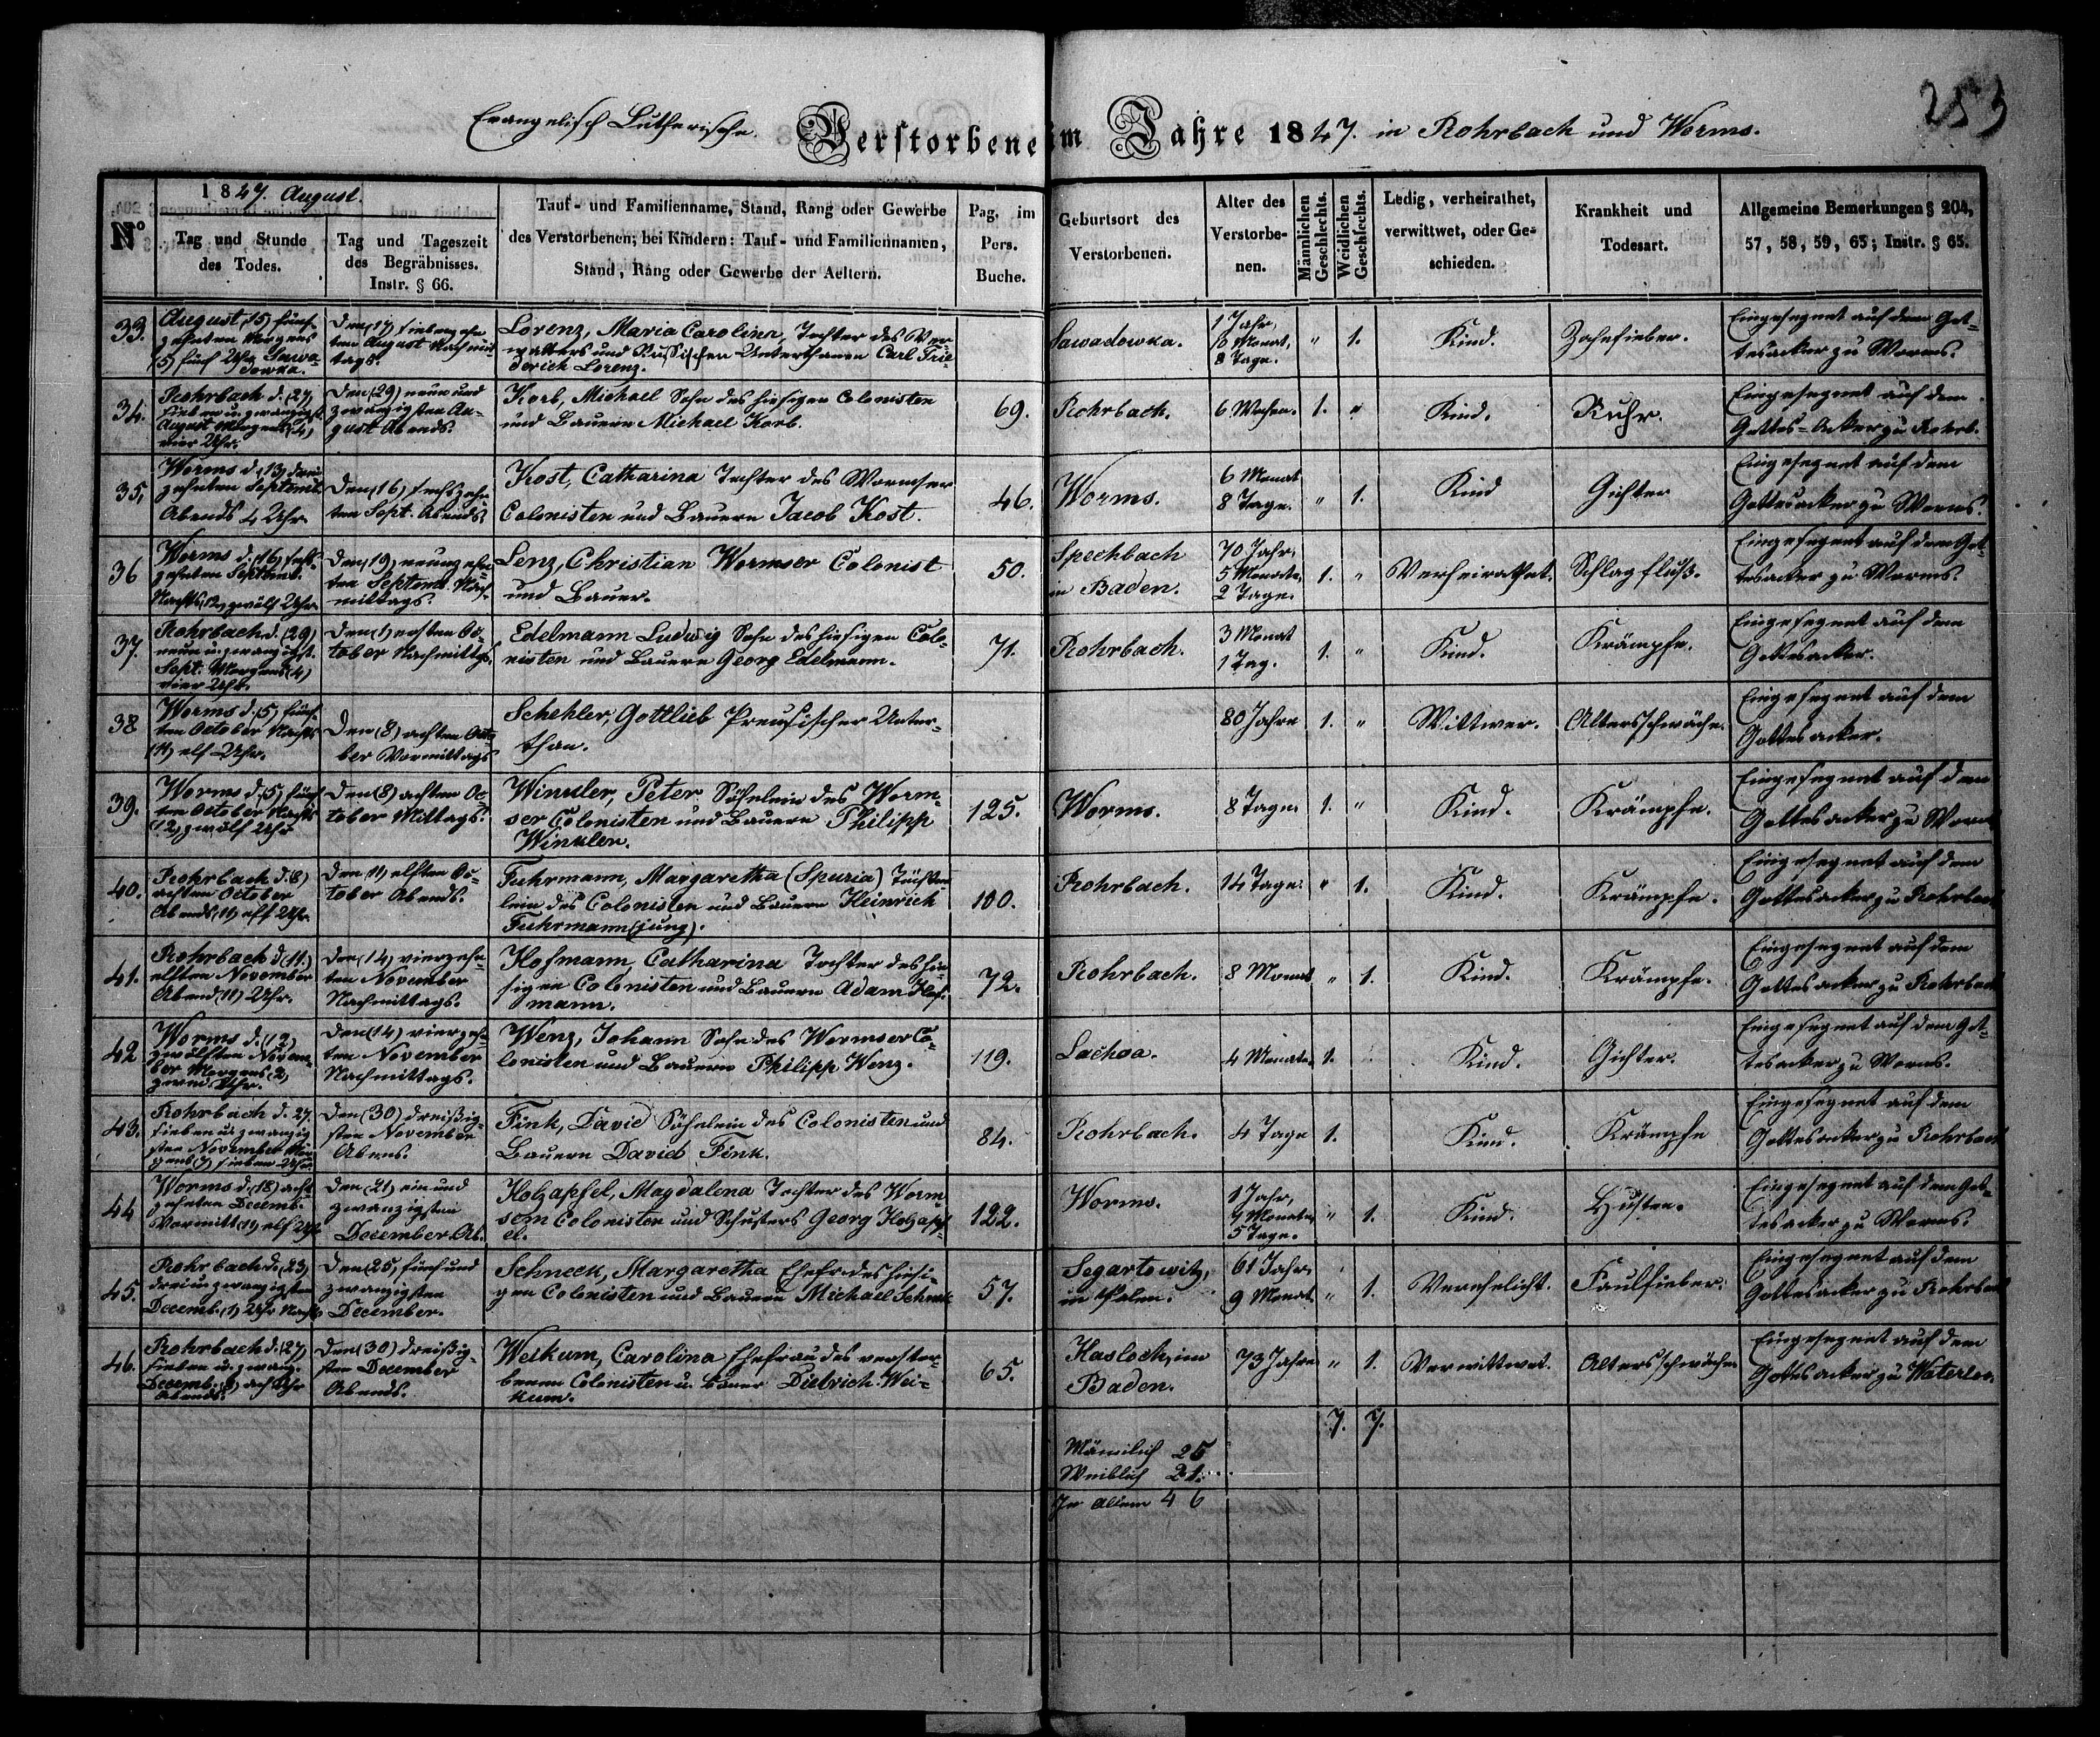 Evangelisch Lutherische Verstorbene im Jahre 1847. in Rohrbach und Worms.
253
No
1847. August.
Tag und Stunde
des Todes.
Tag und Tageszeit
des Begräbnisses.
Instr. § 66.
Tauf- und Familienname, Stand, Rang oder Gewerbe
des Verstorbenen; bei Kindern: Tauf- und Familiennamen,
Stand, Rang oder Gewerbe der Aeltern.
Pag. im
Pers.
Buche.
Geburtsort des
Verstorbenen.
Alter des
Verstorbe-
nen.
Männlichen
Geschlechts.
Weidlichen
Geschlechts.
Ledig, verheirathet,
verwittwet, oder Ge-
schieden.
Krankheit und
Todesart.
Allgemeine Bemerkungen § 204,
57, 58, 59, 65; Instr. § 65.
33.
August (15) fünf-
zehnten Morgens
(5) fünf Uhr Sawa-
dowka.
Den (17) siebenzehn
ten August Nachmit
tags.
Lorenz, Maria Carolina, Tochter des Ver-
walters und Russischen Unterthanen Carl Frie-
derich Lorenz.
Sawadowka.
1 Jahr,
10 Monat,
8 Tage.
" 1.
Kind.
Zahnfieber.
Eingesegnet auf dem Got-
tesacker zu Worms.
34.
Rohrbach d. (27)
sieben u. zwanzigst.
August Morgens (4)
vier Uhr.
Den (29) neun und
zwanzigsten Au-
gust Abends.
Korb, Michael Sohn des hiesigen Colonisten
und Bauern Michael Korb.
69.
Rohrbach.
6 Wochen.
1. "
Kind.
Ruhr.
Eingesegnet auf dem
Gottes-Acker zu Rohrb.
35,
Worms d. (13) drei-
zehnten Septemb.
Abends 4 Uhr.
Den (16) sechszehn
ten Sept. Abends
Kost, Catharina Tochter des Wormser
Colonisten und Bauern Jacob Kost.
46.
Worms.
6 Monat
8 Tage.
" 1.
Kind
Gichter
Eingesegnet auf dem
Gottesacker zu Worms.
36
Worms d. (16) sechs-
zehnten Septemb.
Nachts (12) zwölf Uhr.
Den (19) neunzehn-
ten Septemb. Nach-
mittags.
Lenz, Christian Wormser Colonist
und Bauer.
50.
Spechbach
in Baden.
70 Jahr,
5 Monate,
2 Tage.
1. "
Verheirathet.
Schlagfluß.
Eingesegnet auf dem Got-
tesacker zu Worms.
37.
Rohrbach d. (29)
neun u. zwanzigst.
Sept. Morgens (4)
vier Uhr.
Den (1) ersten Oc-
tober Nachmittgs.
Edelmann Ludwig Sohn des hiesigen Colo-
nisten und Bauern Georg Edelmann.
71.
Rohrbach.
3 Monat
1 Tag.
1. "
Kind.
Krämpfe.
Eingesegnet auf dem
Gottesacker.
38
Worms d. (5) fünf-
ten October Nachts
(11) elf Uhr.
Den (8) achten Octo-
ber Vormittags
Schehler, Gottlieb Preusischer Unter-
than.
80 Jahre
1. "
Wittwer.
Altersschwäche.
Eingesegnet auf dem
Gottesacker.
39.
Worms d. (5) fünf
ten October Nachts
(12) zwölf Uhr
Den (8) achten Oc-
tober Mittags.
Winkler, Peter Söhnlein des Worm-
ser Colonisten und Bauern Philipp
Winkler.
125.
Worms.
8 Tage.
1. "
Kind.
Krämpfe.
Eingesegnet auf dem
Gottesacker zu Worms
40.
Rohrbach d. (8)
achten October
Abends (11) elf Uhr.
Den (11) elften Oc-
tober Abends.
Fuhrmann, Margaretha (Spuria) Töchter-
lein des Colonisten und Bauern Heinrich
Fuhrmann (jung).
100.
Rohrbach.
14 Tage.
" 1.
Kind.
Krämpfe.
Eingesegnet auf dem
Gottesacker zu Rohrbach
41.
Rohrbach d. (11.)
elften November
Abend (11) Uhr.
Den (14) vierzehn-
ten November
Nachmittags.
Hofmann, Catharina Tochter des hie-
sigen Colonisten und Bauern Adam Hof-
mann.
72.
Rohrbach.
8 Monat
" 1.
Kind.
Krämpfe.
Eingesegnet auf dem
Gottesacker zu Rohrbach
42
Worms d. (12)
zwölften Novem-
ber Morgens (2)
zwei Uhr.
Den (14) vierzeh-
ten November
Nachmittags.
Wenz, Johann Sohn des Wormser Co-
lonisten und Bauern Philipp Wenz.
119.
Lachoa.
4 Monate.
1.
Kind.
Gichter.
Eingesegnet auf dem Got-
tesacker zu Worms.
43.
Rohrbach d. 27
sieben u. zwanzig
sten November Mor-
gens (7) sieben Uhr
Den (30) dreißig-
sten November
Abens.
Fink, David Söhnlein des Colonisten und
Bauern David Fink.
84.
Rohrbach.
4 Tage
1.
Kind.
Krämpfe
Eingesegnet auf dem
Gottesacker zu Rohrbach
44
Worms d. (18) acht-
zehnten Decemb.
Vormitt (11) elf Uhr
Den (21) ein und
zwanzigsten
December Ab.
Holzapfel, Magdalena Tochter des Worm-
sern Colonisten und Schusters Georg Holzapf-
el.
122.
Worms.
1 Jahr,
4 Monate
5 Tage.
" 1.
Kind.
Husten.
Eingesegnet auf dem Got-
tesacker zu Worms.
45.
Rohrbach d. (23)
drei u. zwanzigsten
Decemb. (1) Uhr Nachts
Den (25) fünf und
zwanzigsten
December.
Schneck, Margaretha Ehefr. des hiesi-
gen Colonisten und Bauern Michael Schneck
57.
Segartowitz,
in Polen.
61 Jahr,
9 Monat.
" 1.
Verehelicht.
Faulfieber.
Eingesegnet auf dem
Gottesacker zu Rohrbach
46.
Rohrbach d. (27)
sieben u. zwanz.
Decemb. (8) acht Uhr
Abends.
Den (30) dreißig-
sten December
Abends.
Weikum, Carolina Ehefrau des verstor-
benen Colonisten u. Bauer Dietrich Wei-
kum.
65.
Hasloch, im
Baden.
73 Jahre
" 1.
Verwittwet.
Altersschwäche
Eingesegnet auf dem
Gottesacker zu Waterloo.
7. 7.
Männlich 25
Weiblich 21.
In Allem 46